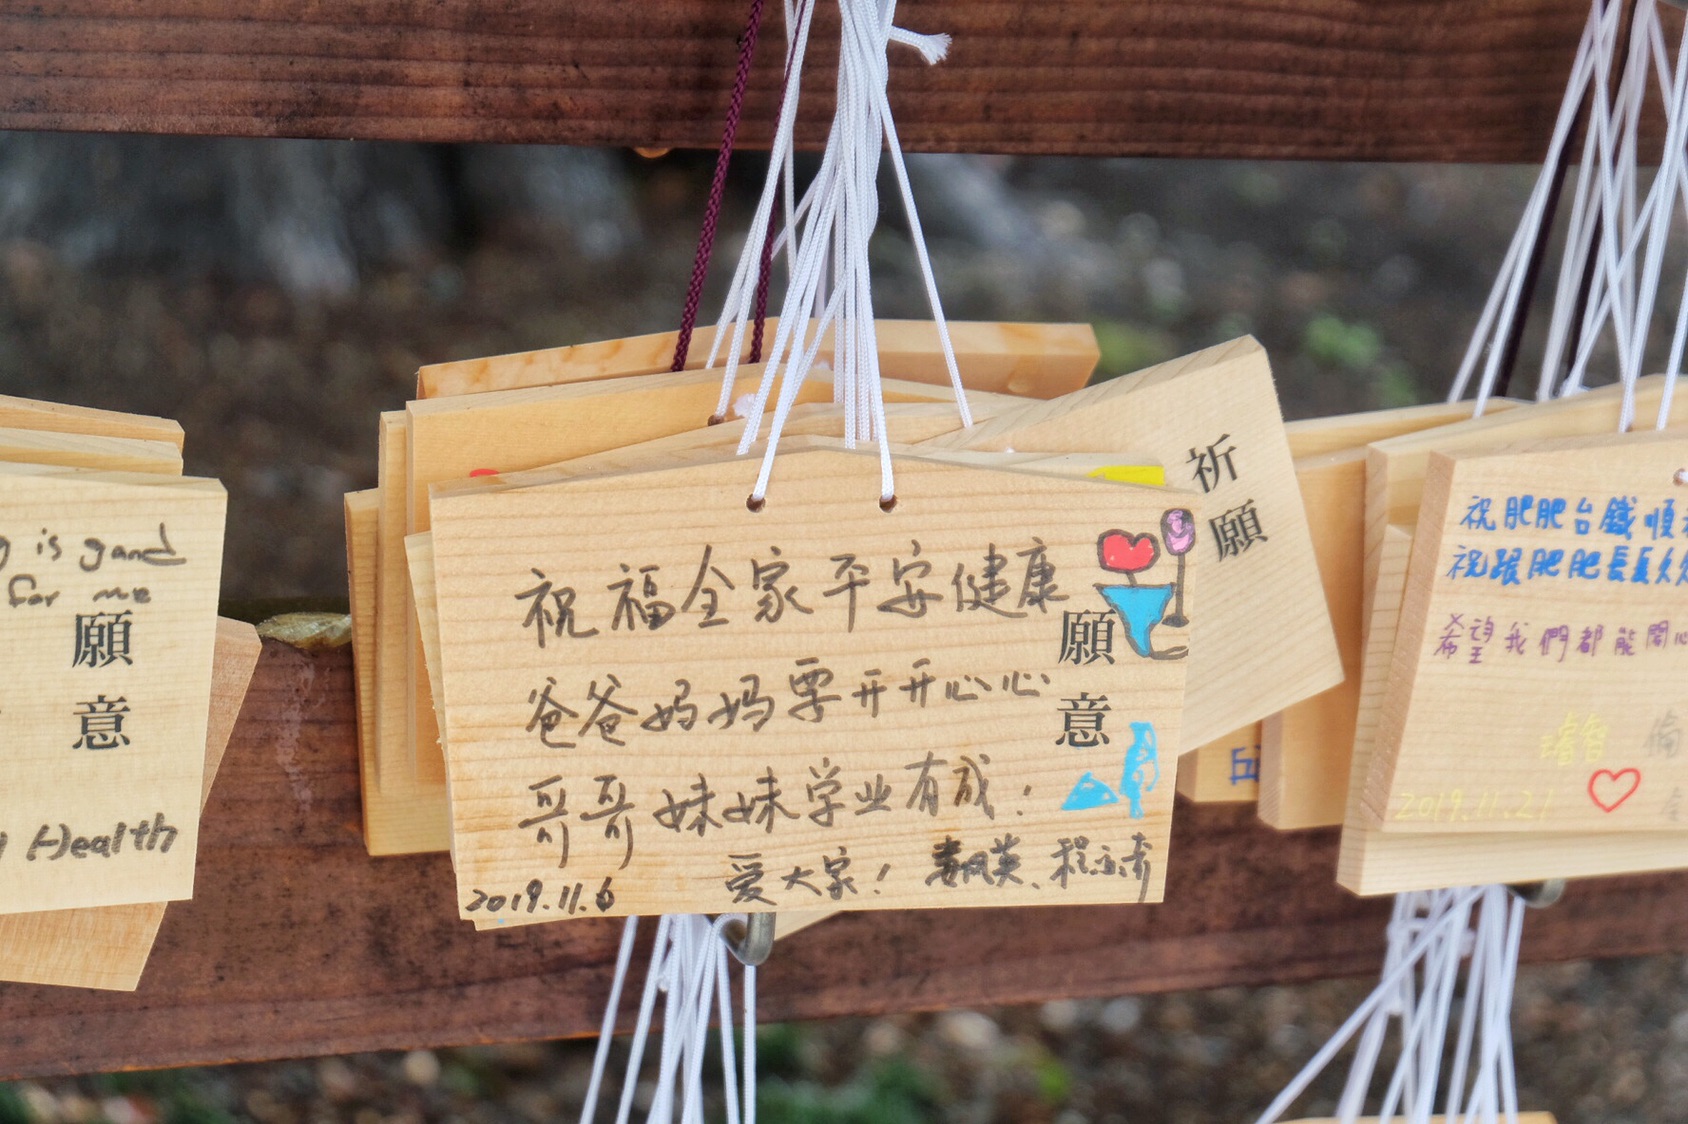 is
for me
願意
Health
祝福全家平安健康
爸爸妈妈要开开心心
哥哥妹妹学业有成!
爱大家!
2019.11.6
願意
祈願
祝肥肥台鐵順
祝跟肥肥長長久久
希望我們都能開心
2019.11.21